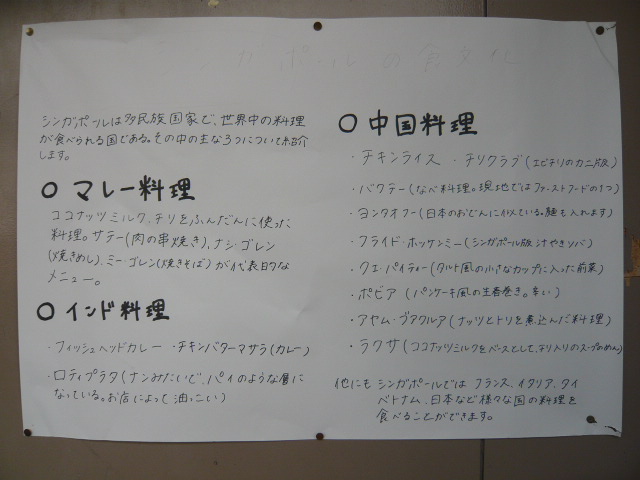 シンガポールの食文化
シンガポールは多民族国家で、世界中の料理
が食べられる国である。その中の主な3つについて紹介
します。
○ マレー料理
ココナッツミルク、チリをふんだんに使った
料理。サテー(肉の串焼き)、ナシ・ゴレン
(焼きめし)、ミー・ゴレン(焼きそば)が代表的な
メニュー。
○ インド料理
・フィッシュヘッドカレー ・チキンバターマサラ(カレー)
・ロティプラタ(ナンみたいで、パイのような層に
なっている。お店によって油っこい)
○ 中国料理
・チキンライス ・チリクラブ(エビチリのカニ版)
・バクテー(なべ料理。現地ではファーストフードの1つ)
・ヨンタオフー(日本のおでんに似ている。麺も入れます)
・フライド・ホッケンミー(シンガポール版汁やきソバ)
・クエ・パイティー(タルト風の小さなカップに入った前菜)
・ポピア(パンケーキ風の生春巻き。辛い)
・アヤム・ブアクルア(ナッツとトリを煮込んだ料理)
・ラクサ(ココナッツミルクをベースとして、チリ入りのスープのめん)
他にも シンガポールでは フランス、イタリア、タイ
ベトナム、日本など様々な国の料理を
食べることができます。